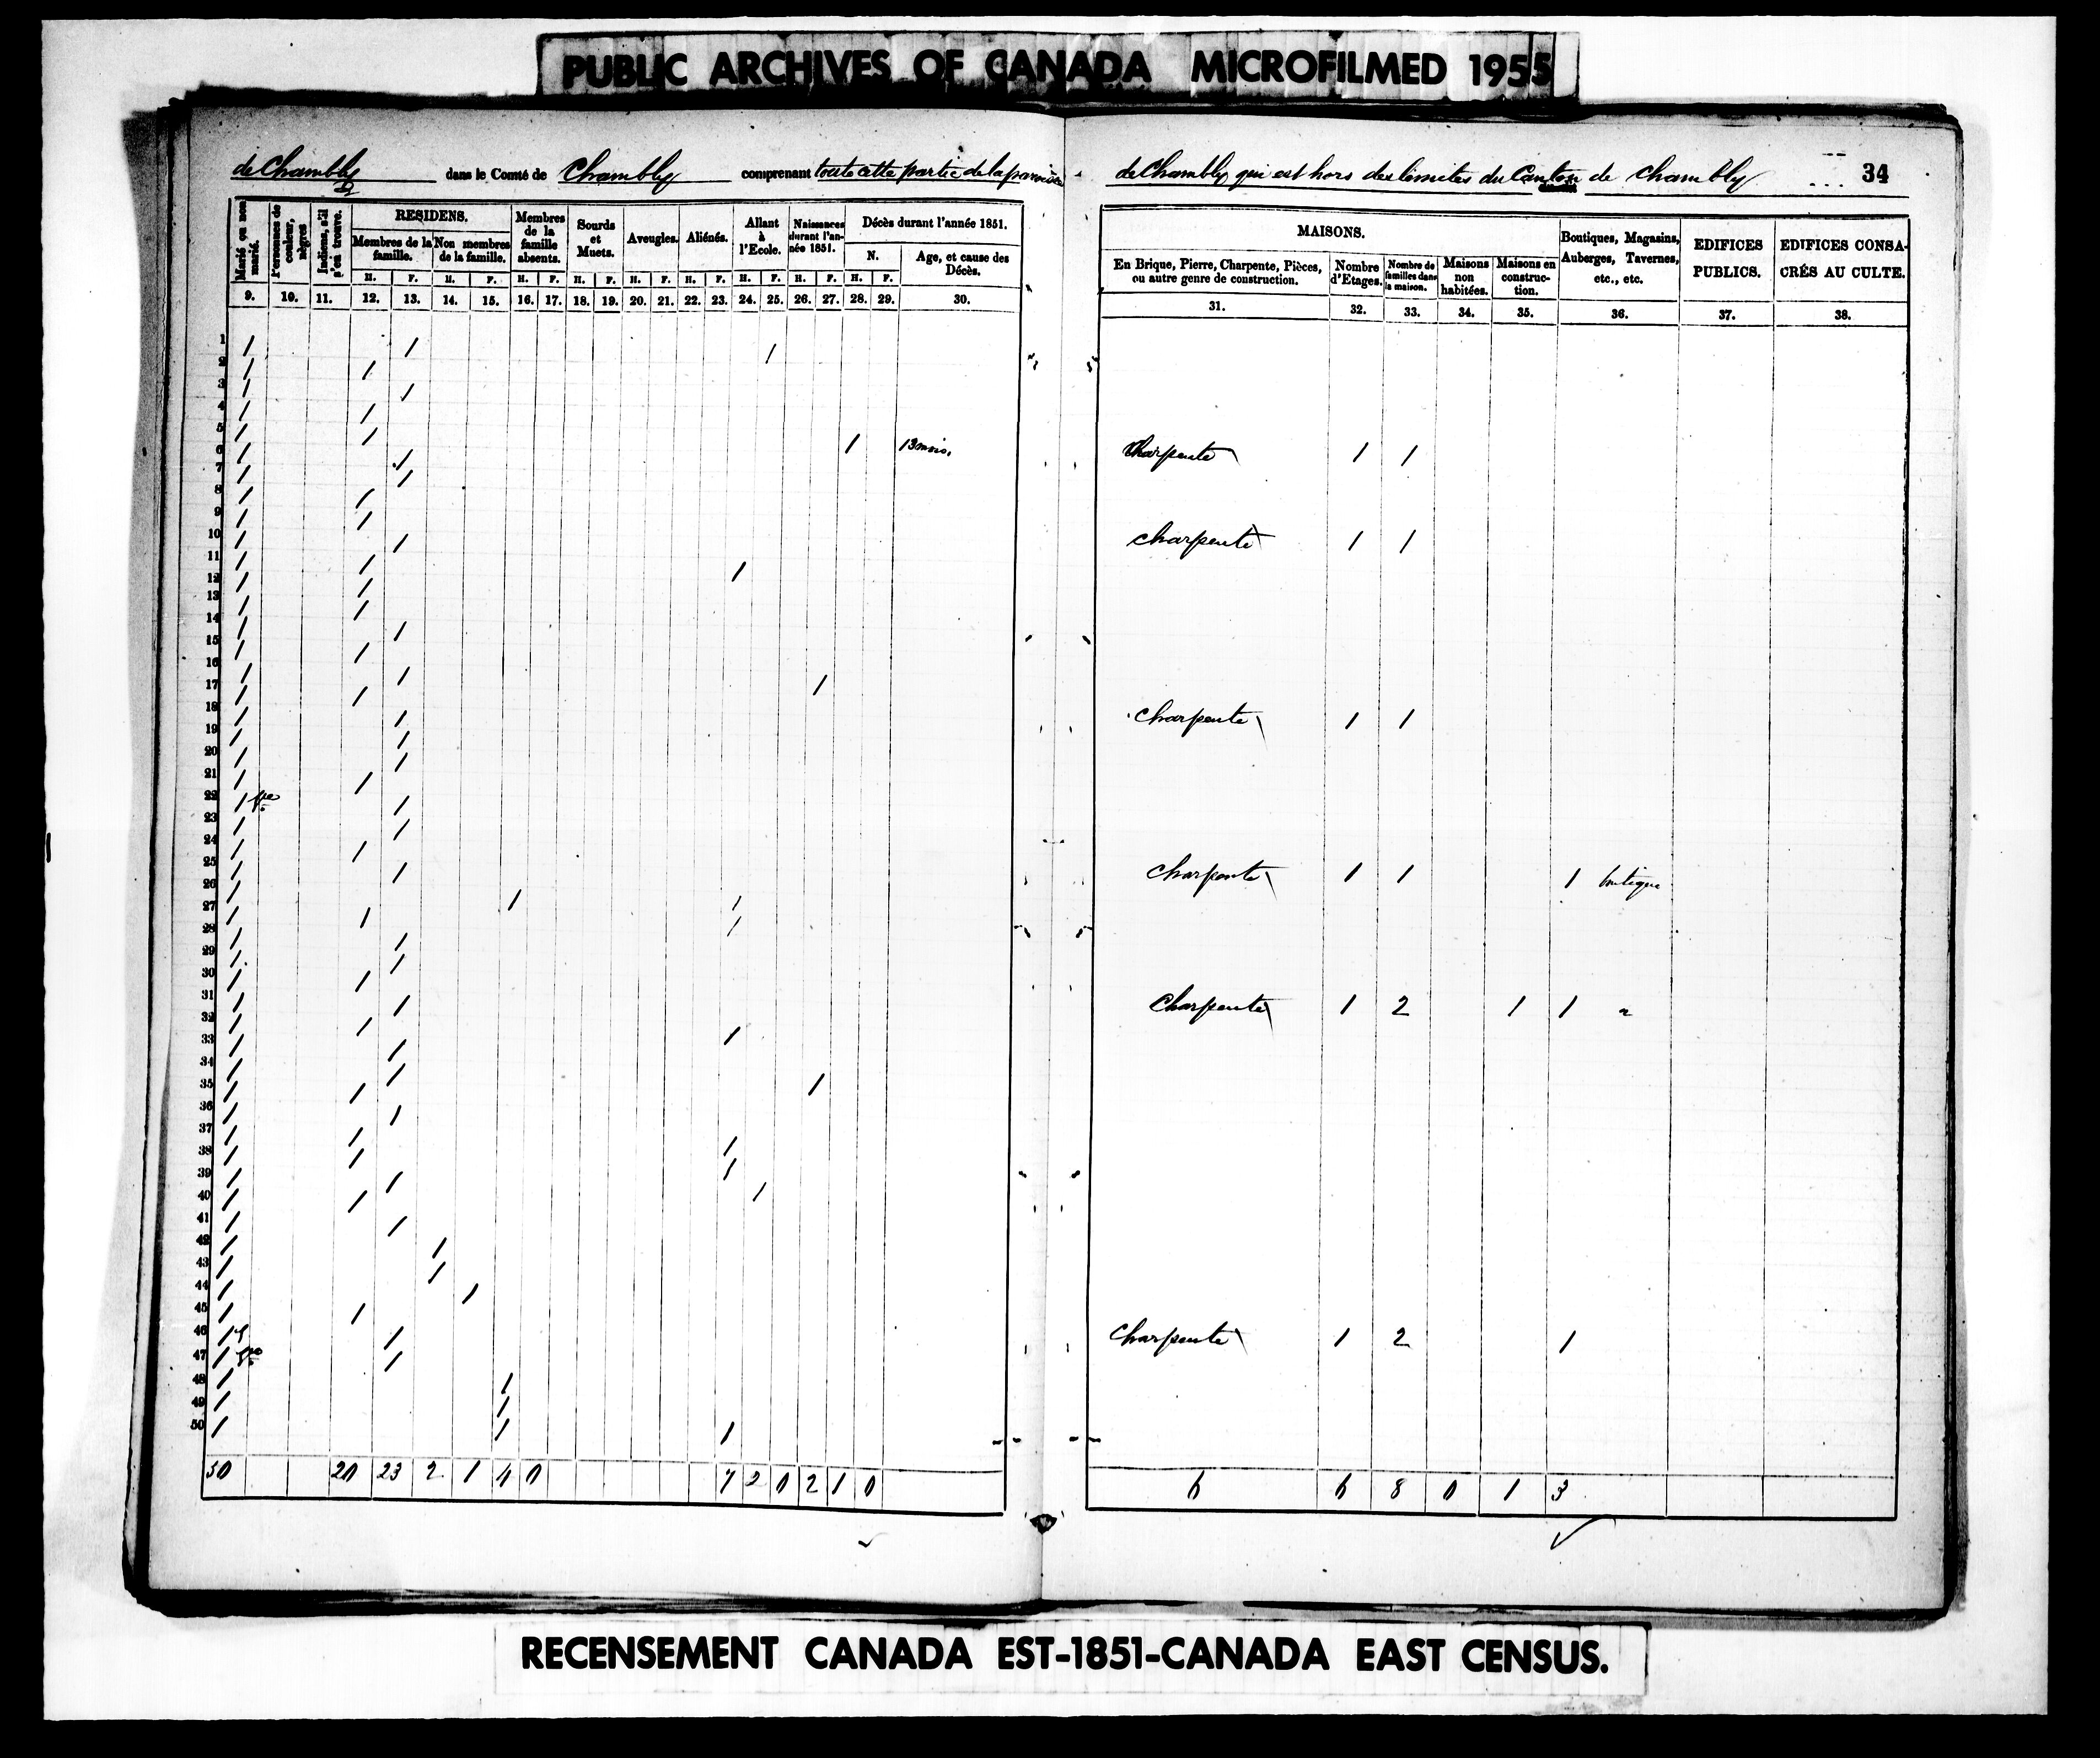 PUBLIC ARCHIVES OF CANADA MICROFILMED 1955
de Chambly dans le Comté de Chambly comprenant toute cette partie de la paroisse
de Chambly qui est hors des limites du Canton de Chambly 34
Marié ou non marié.
Personnes de couleur, nègres
Indiens, s'il s'en trouve.
RESIDENS.
Membres de la famille.
Non membres de la famille.
Membres de la famille absents.
Sourds et Muets.
Aveugles.
Aliénés.
Allant à l'Ecole.
Naissances durant l'année 1851.
Décès durant l'année 1851.
N.
Age, et cause des Décès.
H. F. H. F. H. F. H. F. H. F. H. F. H. F. H. F.
9. 10. 11. 12. 13. 14. 15. 16. 17. 18. 19. 20. 21. 22. 23. 24. 25. 26. 27. 28. 29. 30.
MAISONS.
En Brique, Pierre, Charpente, Pièces, ou autre genre de construction.
Nombre d'Etages.
Nombre de familles dans la maison.
Maisons non habitées.
Maisons en construction.
Boutiques, Magasins, Auberges, Tavernes, etc., etc.
EDIFICES PUBLICS.
EDIFICES CONSACRÉS AU CULTE.
31. 32. 33. 34. 35. 36. 37. 38.
1 / / /
2 / /
3 / /
4 / /
5 / / / 13 mois.
6 / /
7 / /
8 / /
9 / /
10 / /
11 / / /
12 / /
13 / /
14 / /
15 / /
16 / / /
17 / /
18 / /
19 / /
20 / /
21 / /
22 / /
23 / /
24 / /
25 / /
26 / / /
27 / / /
28 / /
29 / /
30 / /
31 / /
32 / / /
33 / /
34 / / /
35 / /
36 / /
37 / / /
38 / / /
39 / / /
40 / /
41 / /
42 / /
43 / /
44 / /
45 / /
46 / /
47 / /
48 / /
49 / /
50 / / /
50 20 23 2 1 4 0 7 2 0 2 1 0
Charpente 1 1
Charpente 1 1
Charpente 1 1
Charpente 1 1 1 boutique
Charpente 1 2 1 1 "
Charpente 1 2 1
6 6 8 0 1 3
RECENSEMENT CANADA EST-1851-CANADA EAST CENSUS.